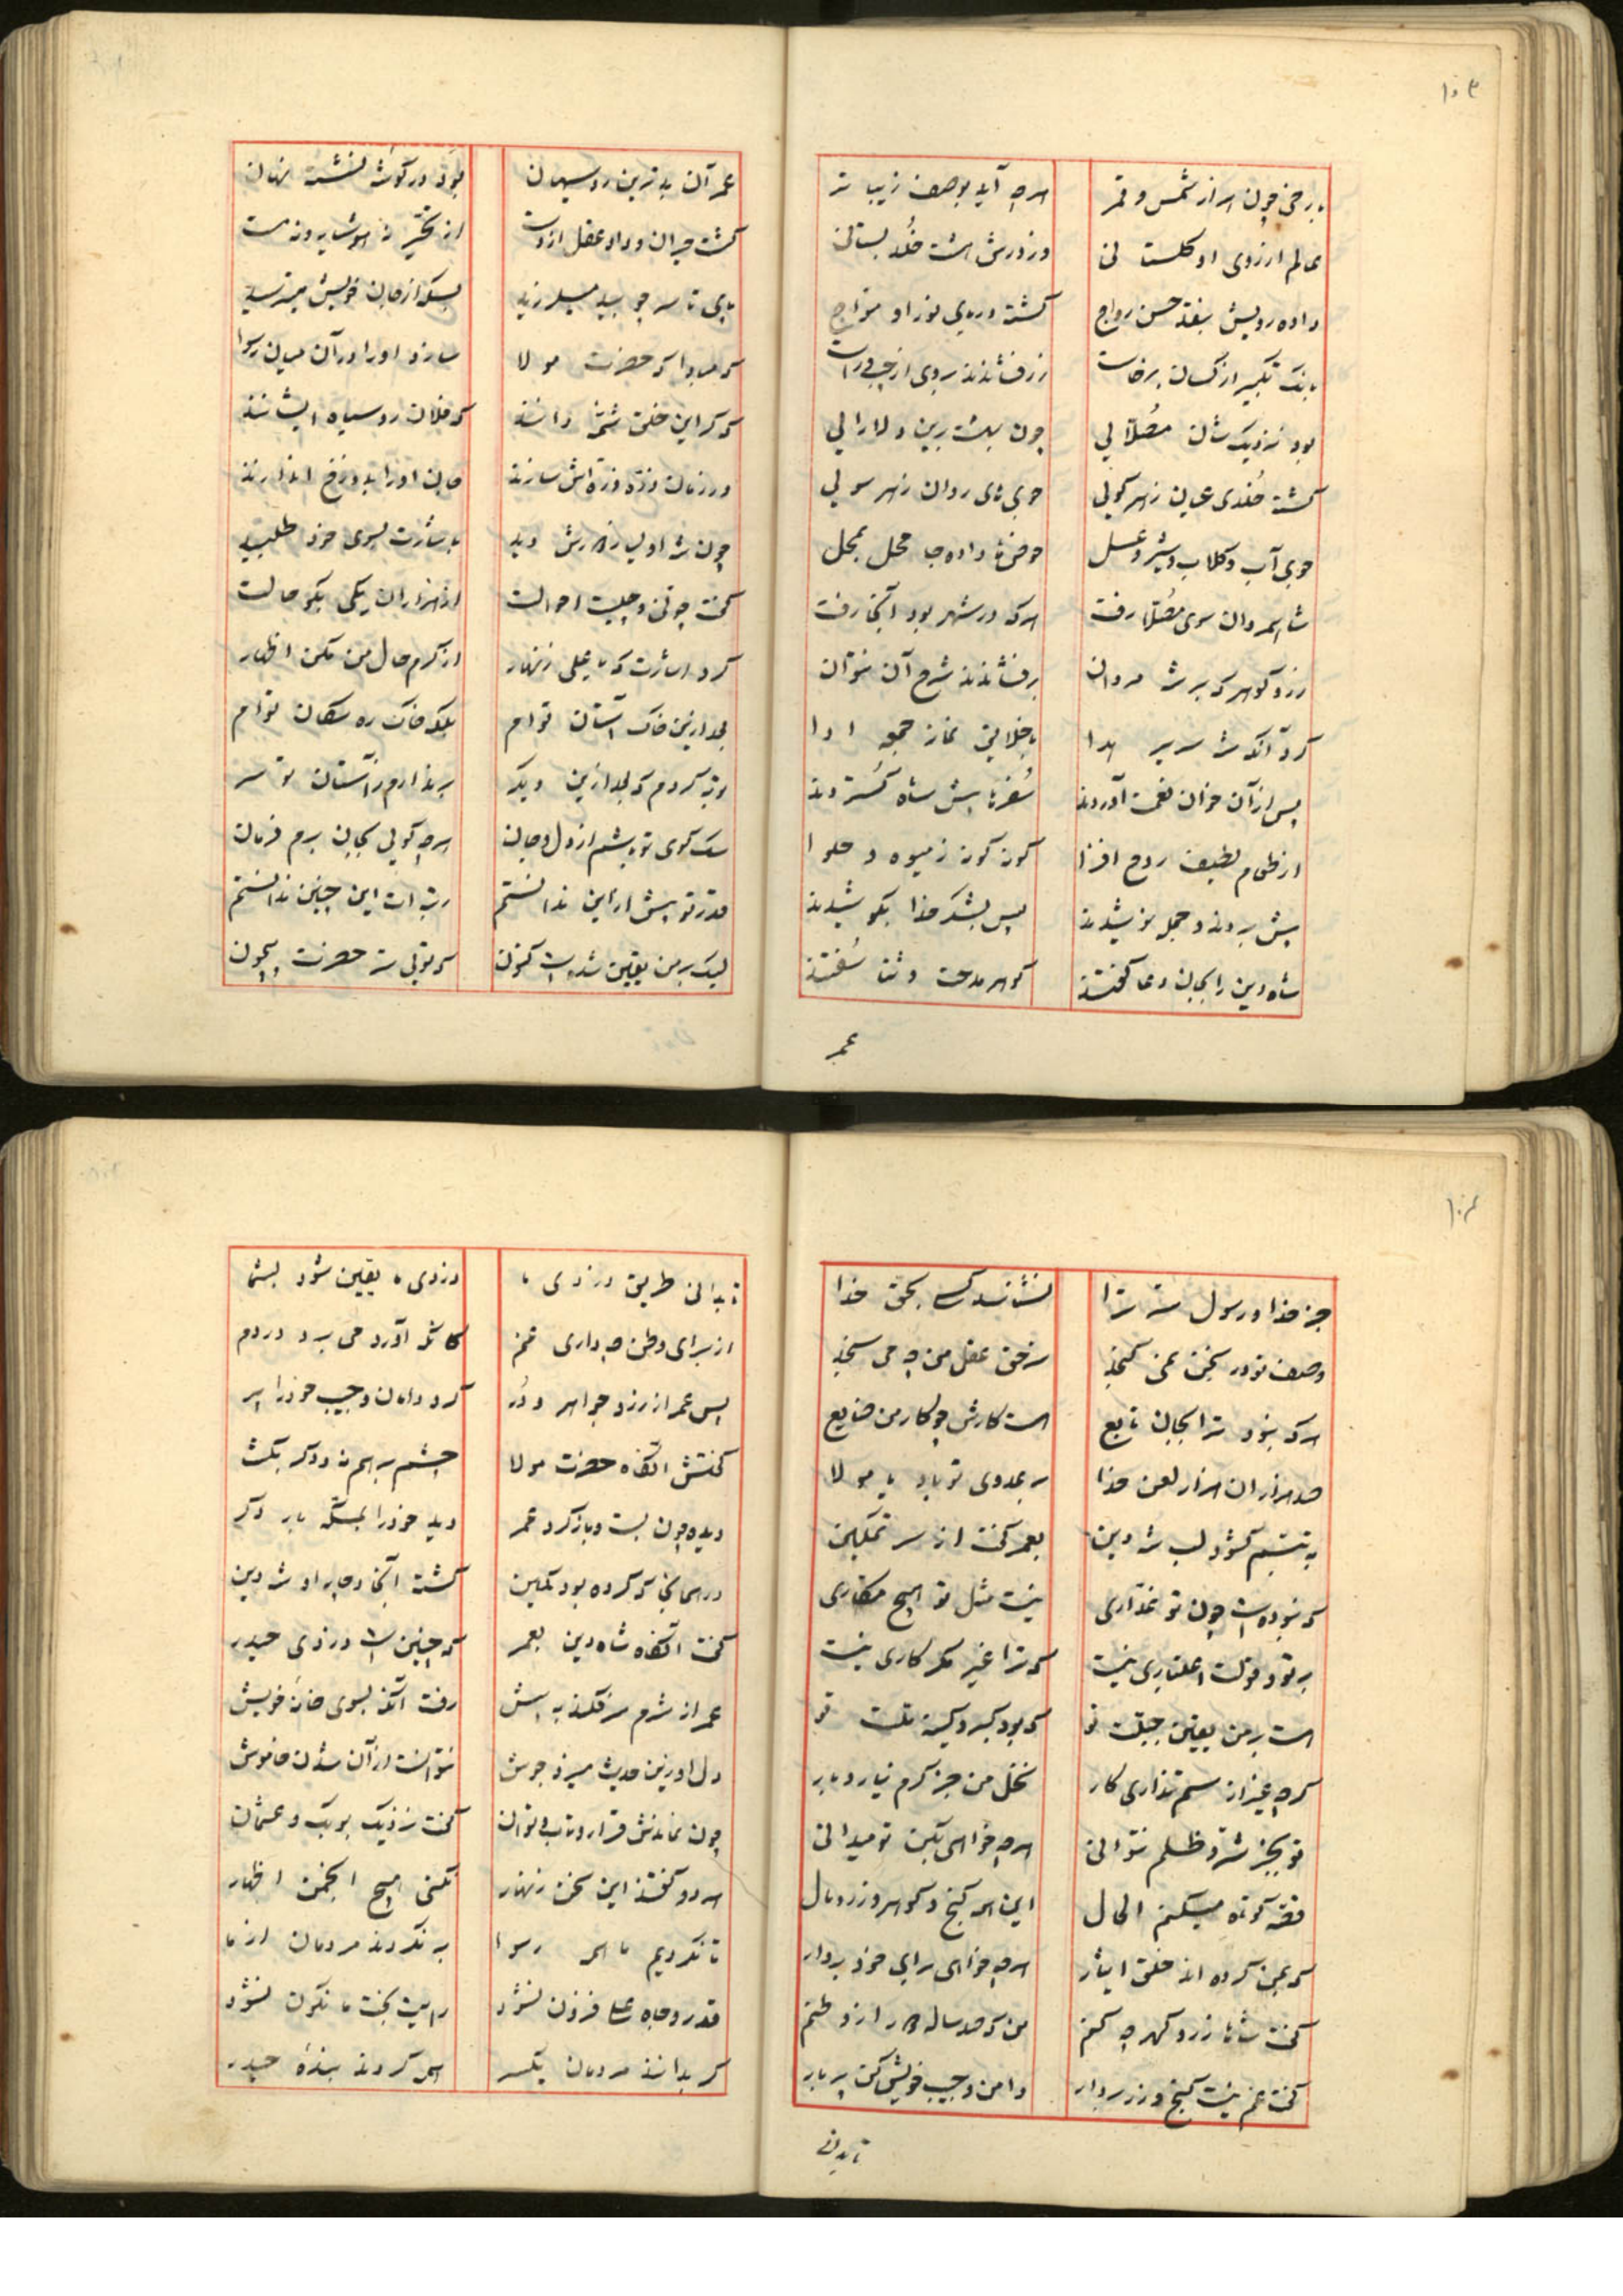 ۱۰۳
با رخی چون هزار شمس و قمر
هر چه آید بوصف زیباتر
عالم ارزوی او کلستانی
وز درش هشت خلد بستانی
داده رویش بنقد حسن رواج
کشته دریای نور او مواج
بانک تکبیر از کسان برخاست
زر فشاندند بروی از چپ و راست
بود نزدیک شان مصلایی
چون بهشت برین دلارایی
کشت خلدی عیان ز هر کویی
جوی های روان ز هر سویی
جوی آب و کلاب و شیر و عسل
حوضها داده جا محل بمحل
شاه مردان سوی مصلا رفت
هر که در شهر بود آنجا رفت
زر و کوهر که بر شه مردان
برفشاندند شرح آن نتوان
کرد آنکه شه سریر هدا
با خلایق نماز جمعه ادا
پس از آن خوان نعمت آوردند
سفرها پیش شاه کستردند
از طعام لطیف روح افزا
کونه کونه ز میوه و حلوا
پیش بردند و جمله نوشیدند
پس بشکر خدا بکوشیدند
شاه دین را بجان دعا کفتند
کوهر مدحت و ثنا سفتند
عمر
عمر آن بدترین روسیهان
بود در کوشه نشسته نهان
کشت حیران و داد عقل از دست
از تحیر نه هوشیار و نه مست
پای تا سر چو بید میلرزید
بسکه از جان خویش میترسید
که مبادا که حضرت مولا
سازد او را در آن میان رسوا
که کر این خلق شمه دانند
که فلان روسیاه ایشانند
در زمان ذره ذره اش سازند
جان او را بدوزخ اندازند
چون شه اولیا ز کارش دید
با شارت بسوی خود طلبید
کفت چونی و چیست احوالت
از هزاران یکی بکو حالت
کرد اشارت که یا علی زنهار
از کرم حال من مکن اظهار
بعد ازین خاک آستان توام
بلکه خاک ره سکان توام
توبه کردم که بعد ازین دیکر
برندارم ز آستان تو سر
سک کوی تو باشم از دل و جان
هر چه کویی بجان برم فرمان
قدر تو پیش از این ندانستم
رتبه ات این چنین ندانستم
لیک بر من یقین شده است کنون
که تویی سر حضرت بیچون
۱۰۴
جز خدا و رسول سر ترا
نشناسد کسی بحق خدا
وصف تو در سخن نمی کنجد
سر حق عقل من چه می سنجد
هر که نبود ترا بجان تابع
هست کارش چو کار من ضایع
صد هزاران هزار لعن خدا
بر عدوی تو باد یا مولا
به تبسم کشود لب شه دین
بعمر کفت از سر تمکین
که نبوده است چون تو غداری
نیست مثل تو هیچ مکاری
بر تو و قولت اعتباری نیست
که ترا غیر مکر کاری نیست
هست بر من یقین جبلت تو
که بود کبر و کینه ملت تو
کر چه غیر از ستم نداری کار
نخل من جز کرم نیارد بار
تو بجز شر و ظلم نتوانی
هر چه خواهی بکن تو میدانی
قصه کوتاه میکنم الحال
این همه کنج و کوهر و زر و مال
که بمن کرده اند خلق ایثار
هر چه خواهی برای خود بردار
کفت شاها زر و کهر چه کنم
من که صد ساله راه از وطنم
کفت غم نیست کنج و زر بردار
دامن و جیب خویش کن پر بار
تا بدانی
تا بدانی طریق دزدی ما
دزدی ما یقین شود بشما
از برای وطن چه داری غم
کانکه آورد می برد در دم
پس عمر از زر و جواهر و در
کرد دامان و جیب خود را پر
کفتش انکاه حضرت مولا
چشم بر هم نه و دکر بکشا
دیده چون بست و باز کرد عمر
دید خود را بمکه بار دکر
در همانجا که کرده بود کمین
کشته آنجا دچار او شه دین
کفت انکاه شاه دین بعمر
که چنین است دزدی حیدر
عمر از شرم سر فکند به پیش
رفت آنکه بسوی خانه خویش
دل او زین حدیث میزد جوش
نتوانست از آن شدن خاموش
چون نماندش قرار و تاب و توان
کفت نزدیک بوبکر و عثمان
هر دو کفتند این سخن زنهار
نکنی هیچ انجمن اظهار
تا نکردیم ما همه رسوا
به نکردند مردمان از ما
قدر و جاه علی فزون نشود
رایت بخت ما نکون نشود
کر بدانند مردمان یکسر
همه کردند بنده حیدر